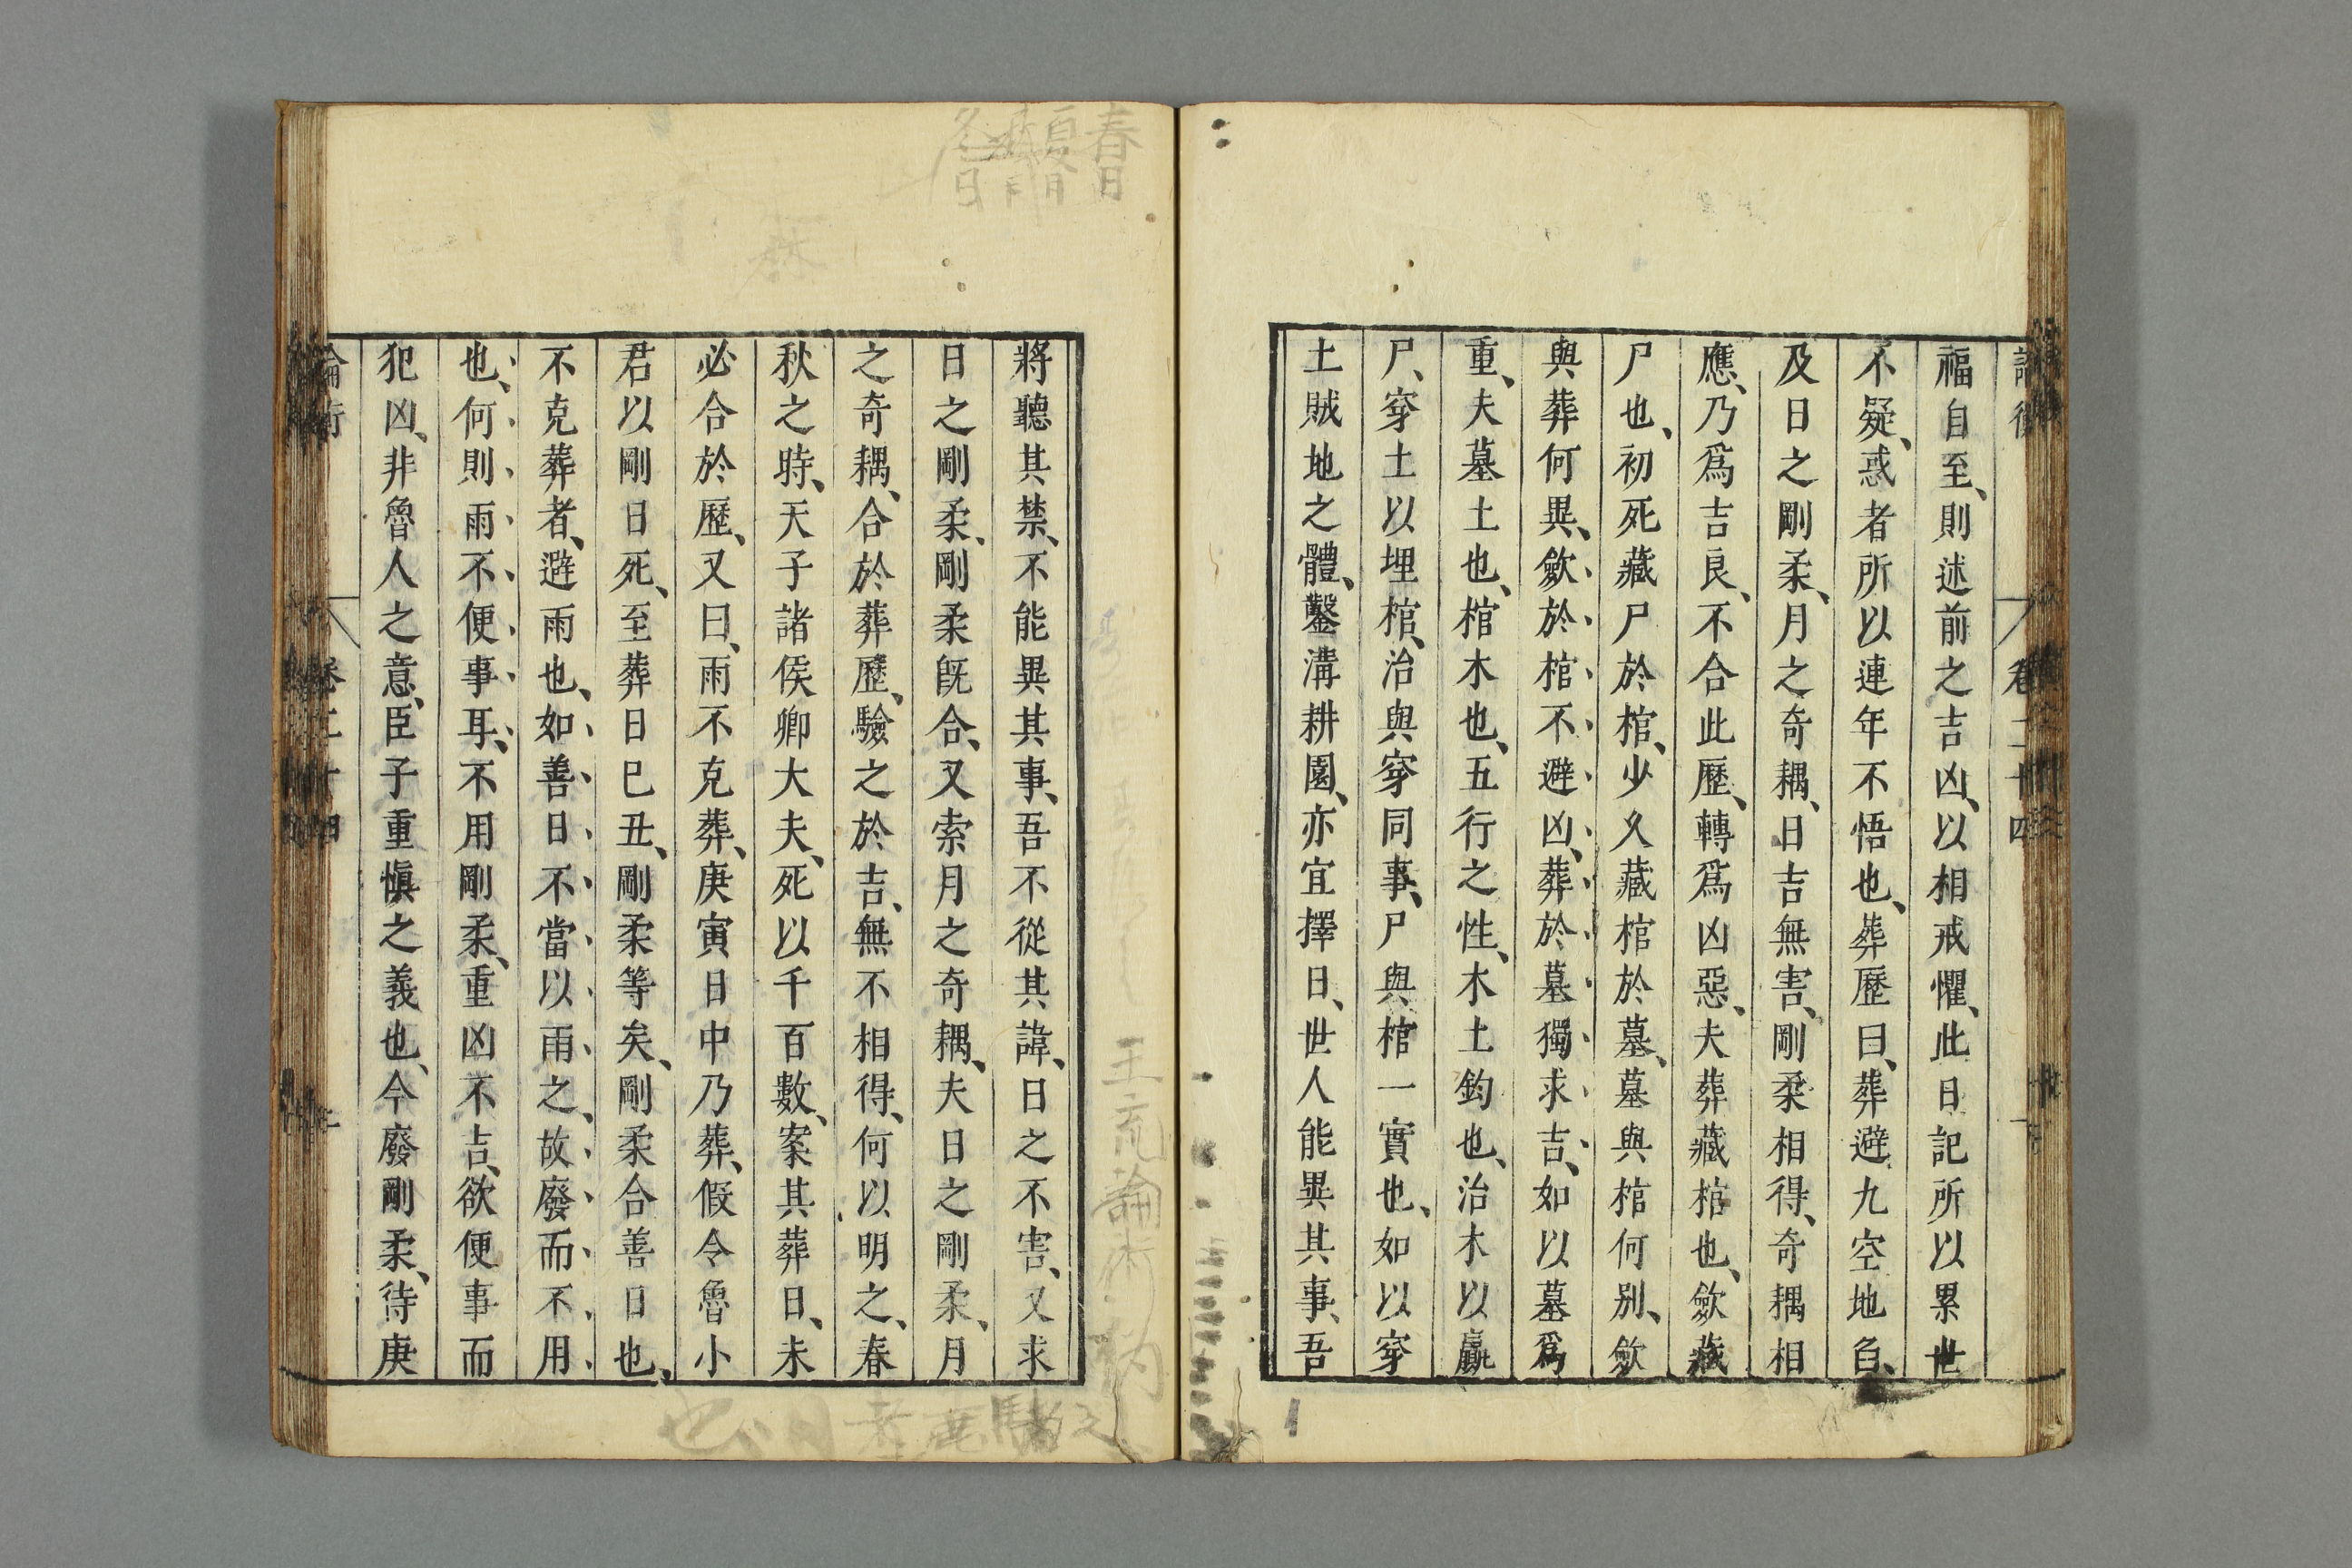 論衡 卷二十四
福自至、則述前之吉凶、以相戒懼、此日記所以累世
不疑、惑者所以連年不悟也、葬歷曰、葬避九空地臽、
及日之剛柔、月之奇耦、日吉無害、剛柔相得、奇耦相
應、乃爲吉良、不合此歷、轉爲凶惡、夫葬藏棺也、斂藏
尸也、初死藏尸於棺、少久藏棺於墓、墓與棺何別、斂
與葬何異、斂於棺不避凶、葬於墓獨求吉、如以墓爲
重、夫墓土也、棺木也、五行之性、木土鈞也、治木以贏
尸、穿土以埋棺、治與穿同事、尸與棺一實也、如以穿
土賊地之體、鑿溝耕園、亦宜擇日、世人能異其事、吾
將聽其禁、不能異其事、吾不從其諱、日之不害、又求
日之剛柔、剛柔旣合、又索月之奇耦、夫日之剛柔、月
之奇耦、合於葬歷、驗之於吉、無不相得、何以明之、春
秋之時、天子諸侯卿大夫、死以千百數、案其葬日、未
必合於歷、又曰、雨不克葬、庚寅日中乃葬、假令魯小
君以剛日死、至葬日巳丑、剛柔等矣、剛柔合善日也、
不克葬者、避雨也、如善日不當以雨之、故廢而不用
也、何則雨不便事耳、不用剛柔、重凶不吉、欲便事而
犯凶、非魯人之意、臣子重愼之義也、今廢剛柔、待庚
論衡 卷二十四
春日
夏日
冬日
王充論衡